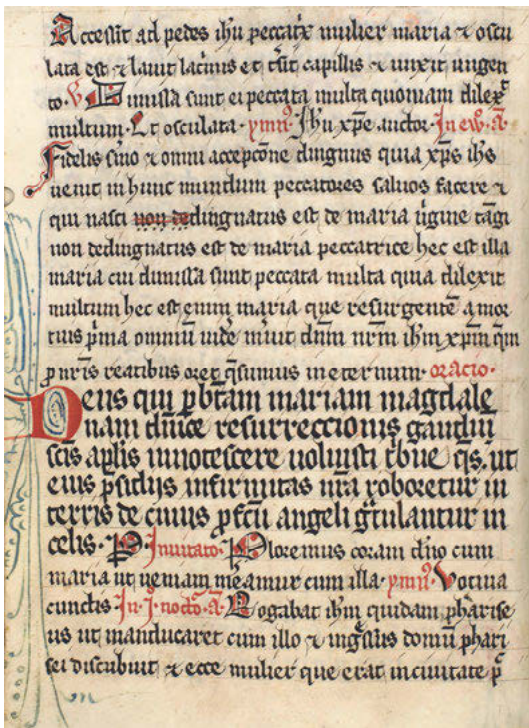 Accessit ad pedes ihu peccat͛x mulier maria ⁊ oscu
lata est ⁊ lauit lac͛mis et t͛sit capillis ⁊ unxit ungen
to. V Dimissa sunt ei peccata multa quoniam dilex͛
multum. Et osculata. ymn͛9 Ihu xp̄e auctor. In eu͛o. a͛
Fidelis s͛mo ⁊ omni accepc̄one dingnus quia xp̄s ih̄s
uenit in hunc mundum peccatores saluos facere ⁊
qui nasci non de dedingnatus est de maria u͛gine tāgi
non dedingnatus est de maria peccatrice hec est illa
maria cui dimissa sunt peccata multa quia dilexit
multum hec est enim maria que resurgentē a mor
tuis p͛ma omniū uide m͛uit dn̄m nr̄m ih̄m xp̄m q͛m
ꝓ nr̄is reatibus oret q̄sumus in eternum. oracio.
Deus qui p͛ bt̄am mariam magdale
nam dn̄ice resurreccionis gaudiū
sc̄is ap̄lis innotescere uoluisti t͛bue q̄s. ut
eius p͛sidijs infirmitas nr̄a roboretur in
terris de cuius ꝓfc̄u angeli g͛tulantur in
celis. P. Inuitato. Ploremus coram dn̄o cum
maria ut ueniam me͛amur cum illa. ymn͛9. Votiua
cunctis In .j. nocto. a͛ Rogabat ih̄m quidam pharise
us ut manducaret cum illo ⁊ ing͛ssus domū phari
sei discubuit ⁊ ecce mulier que erat in ciuitate p͛